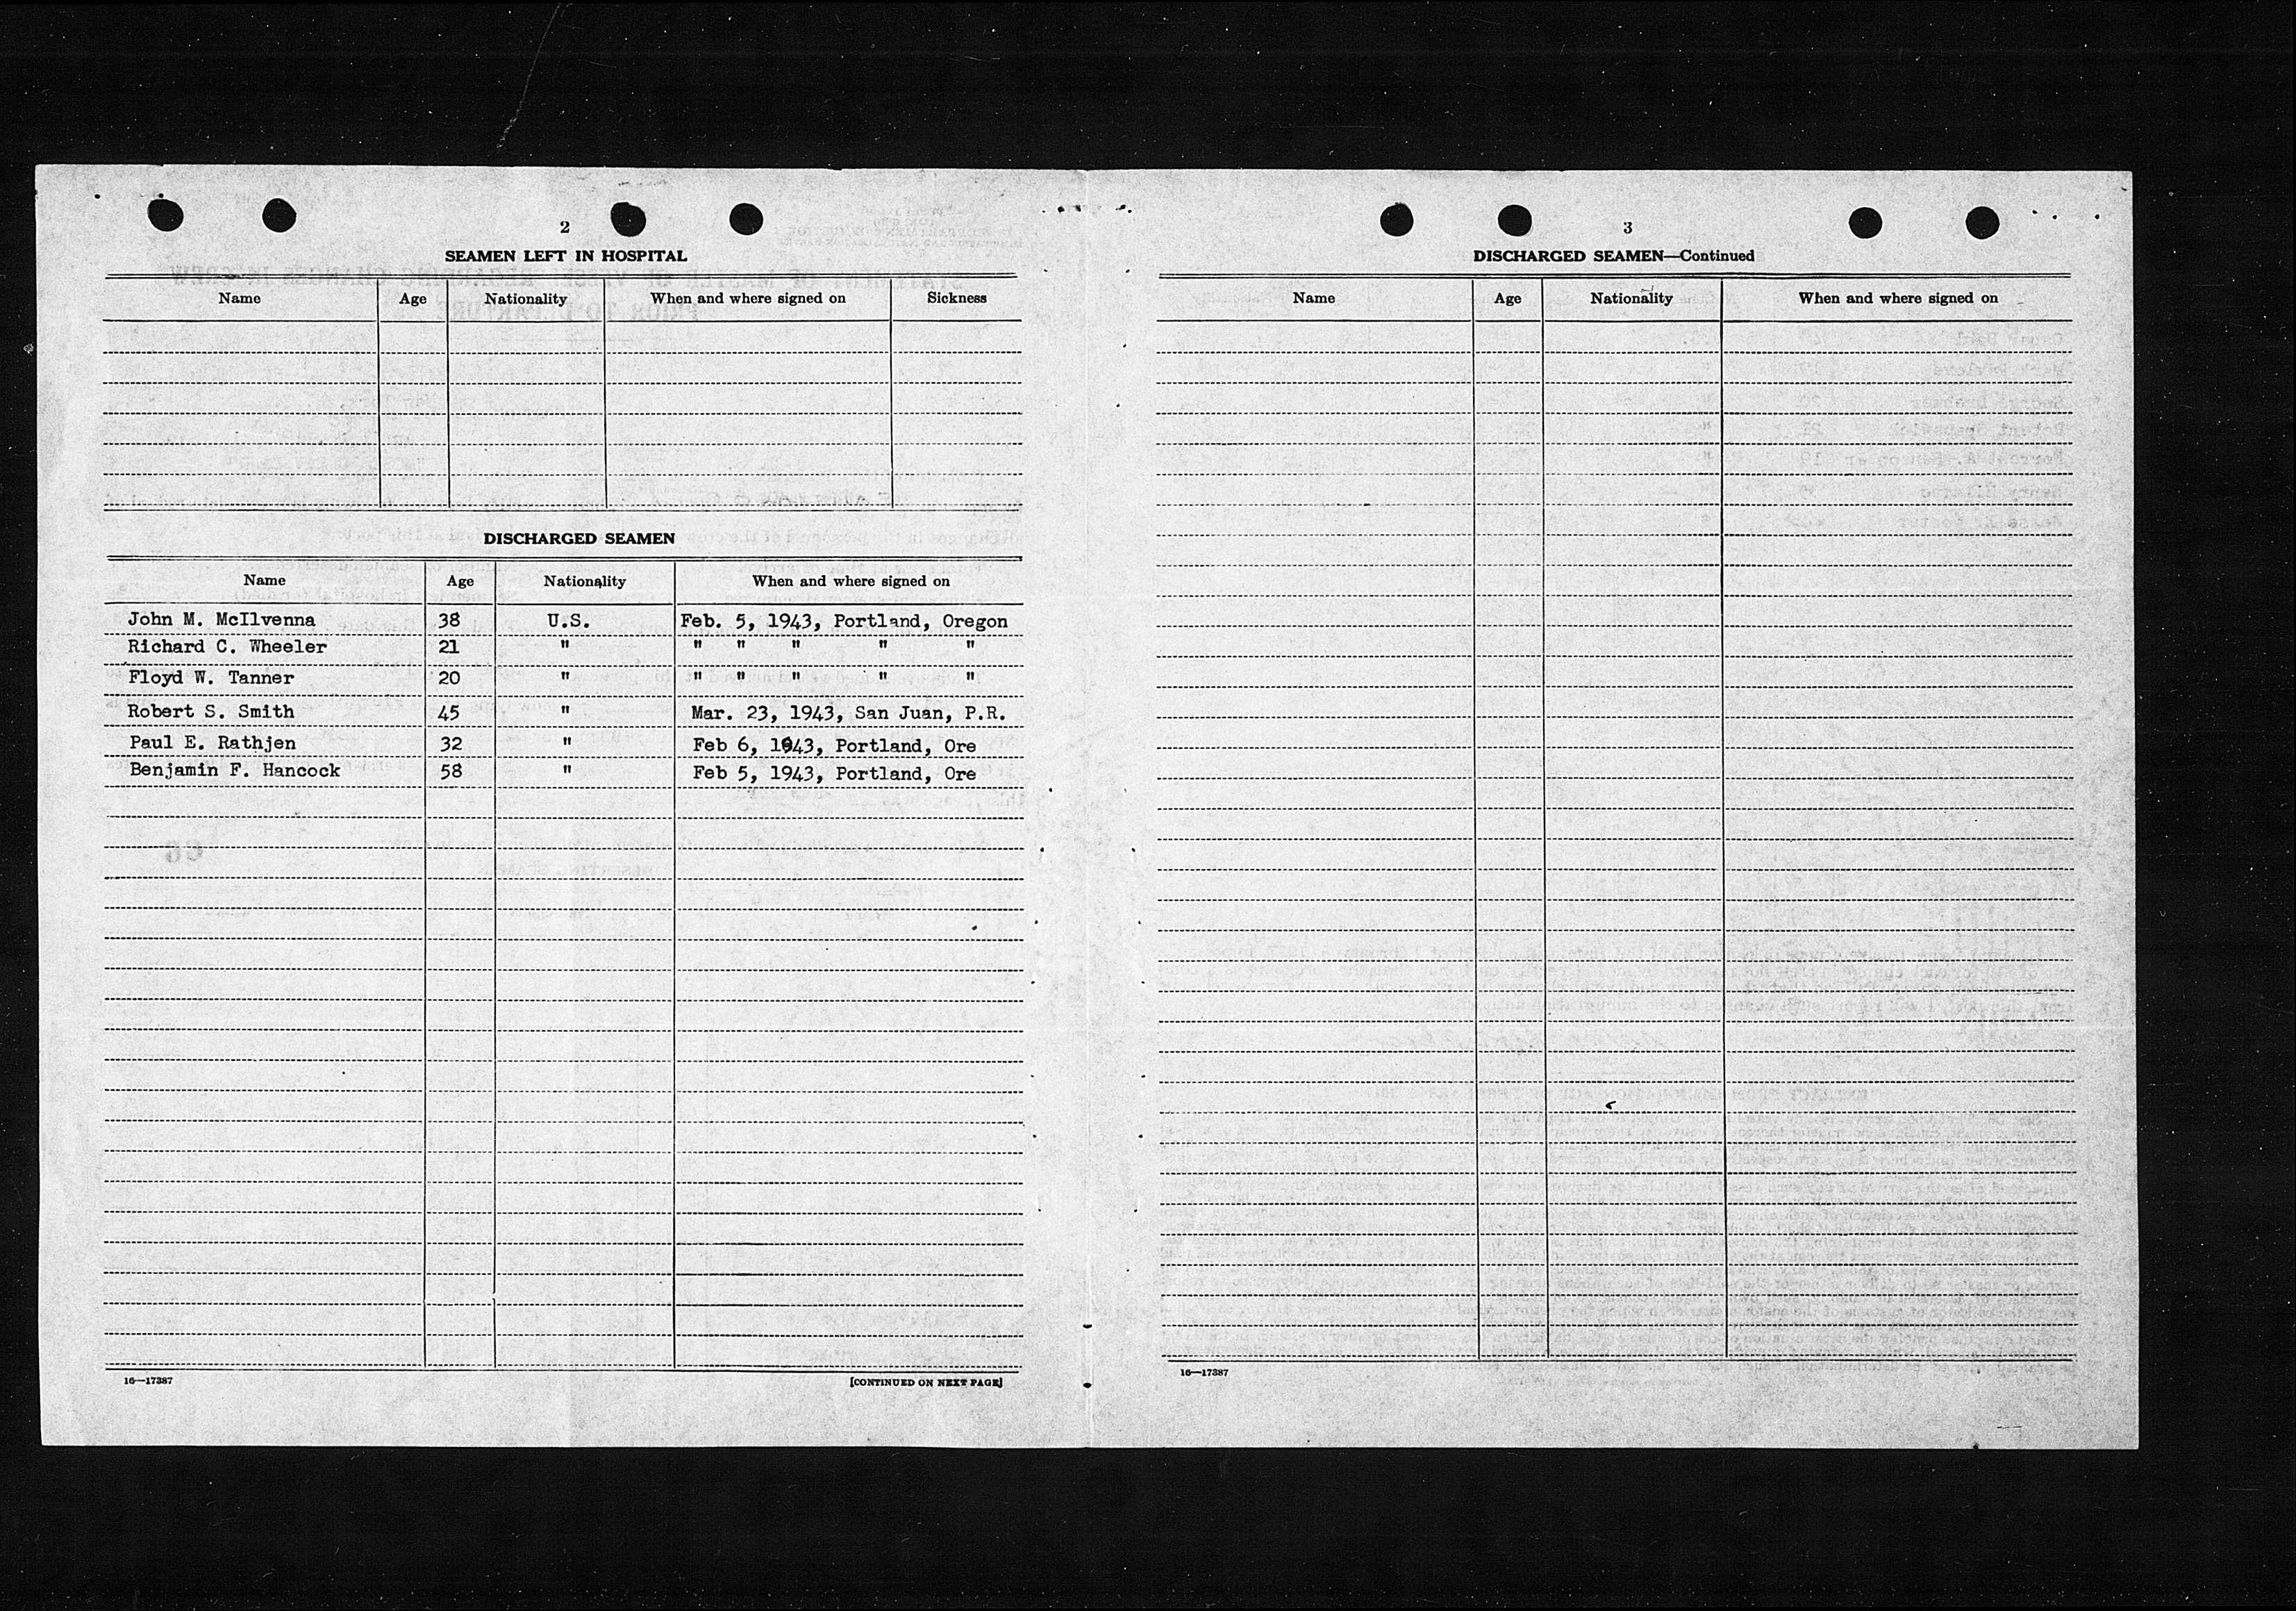 2
SEAMEN LEFT IN HOSPITAL
Name Age Nationality When and where signed on Sickness
DISCHARGED SEAMEN
Name Age Nationality When and where signed on
John M. McIlvenna 38 U.S. Feb. 5, 1943, Portland, Oregon
Richard C. Wheeler 21 " " " " " "
Floyd W. Tanner 20 " " " " " "
Robert S. Smith 45 " Mar. 23, 1943, San Juan, P.R.
Paul E. Rathjen 32 " Feb 6, 1943, Portland, Ore
Benjamin F. Hancock 58 " Feb 5, 1943, Portland, Ore
16—17387 [CONTINUED ON NEXT PAGE]
3
DISCHARGED SEAMEN—Continued
Name Age Nationality When and where signed on
16—17387